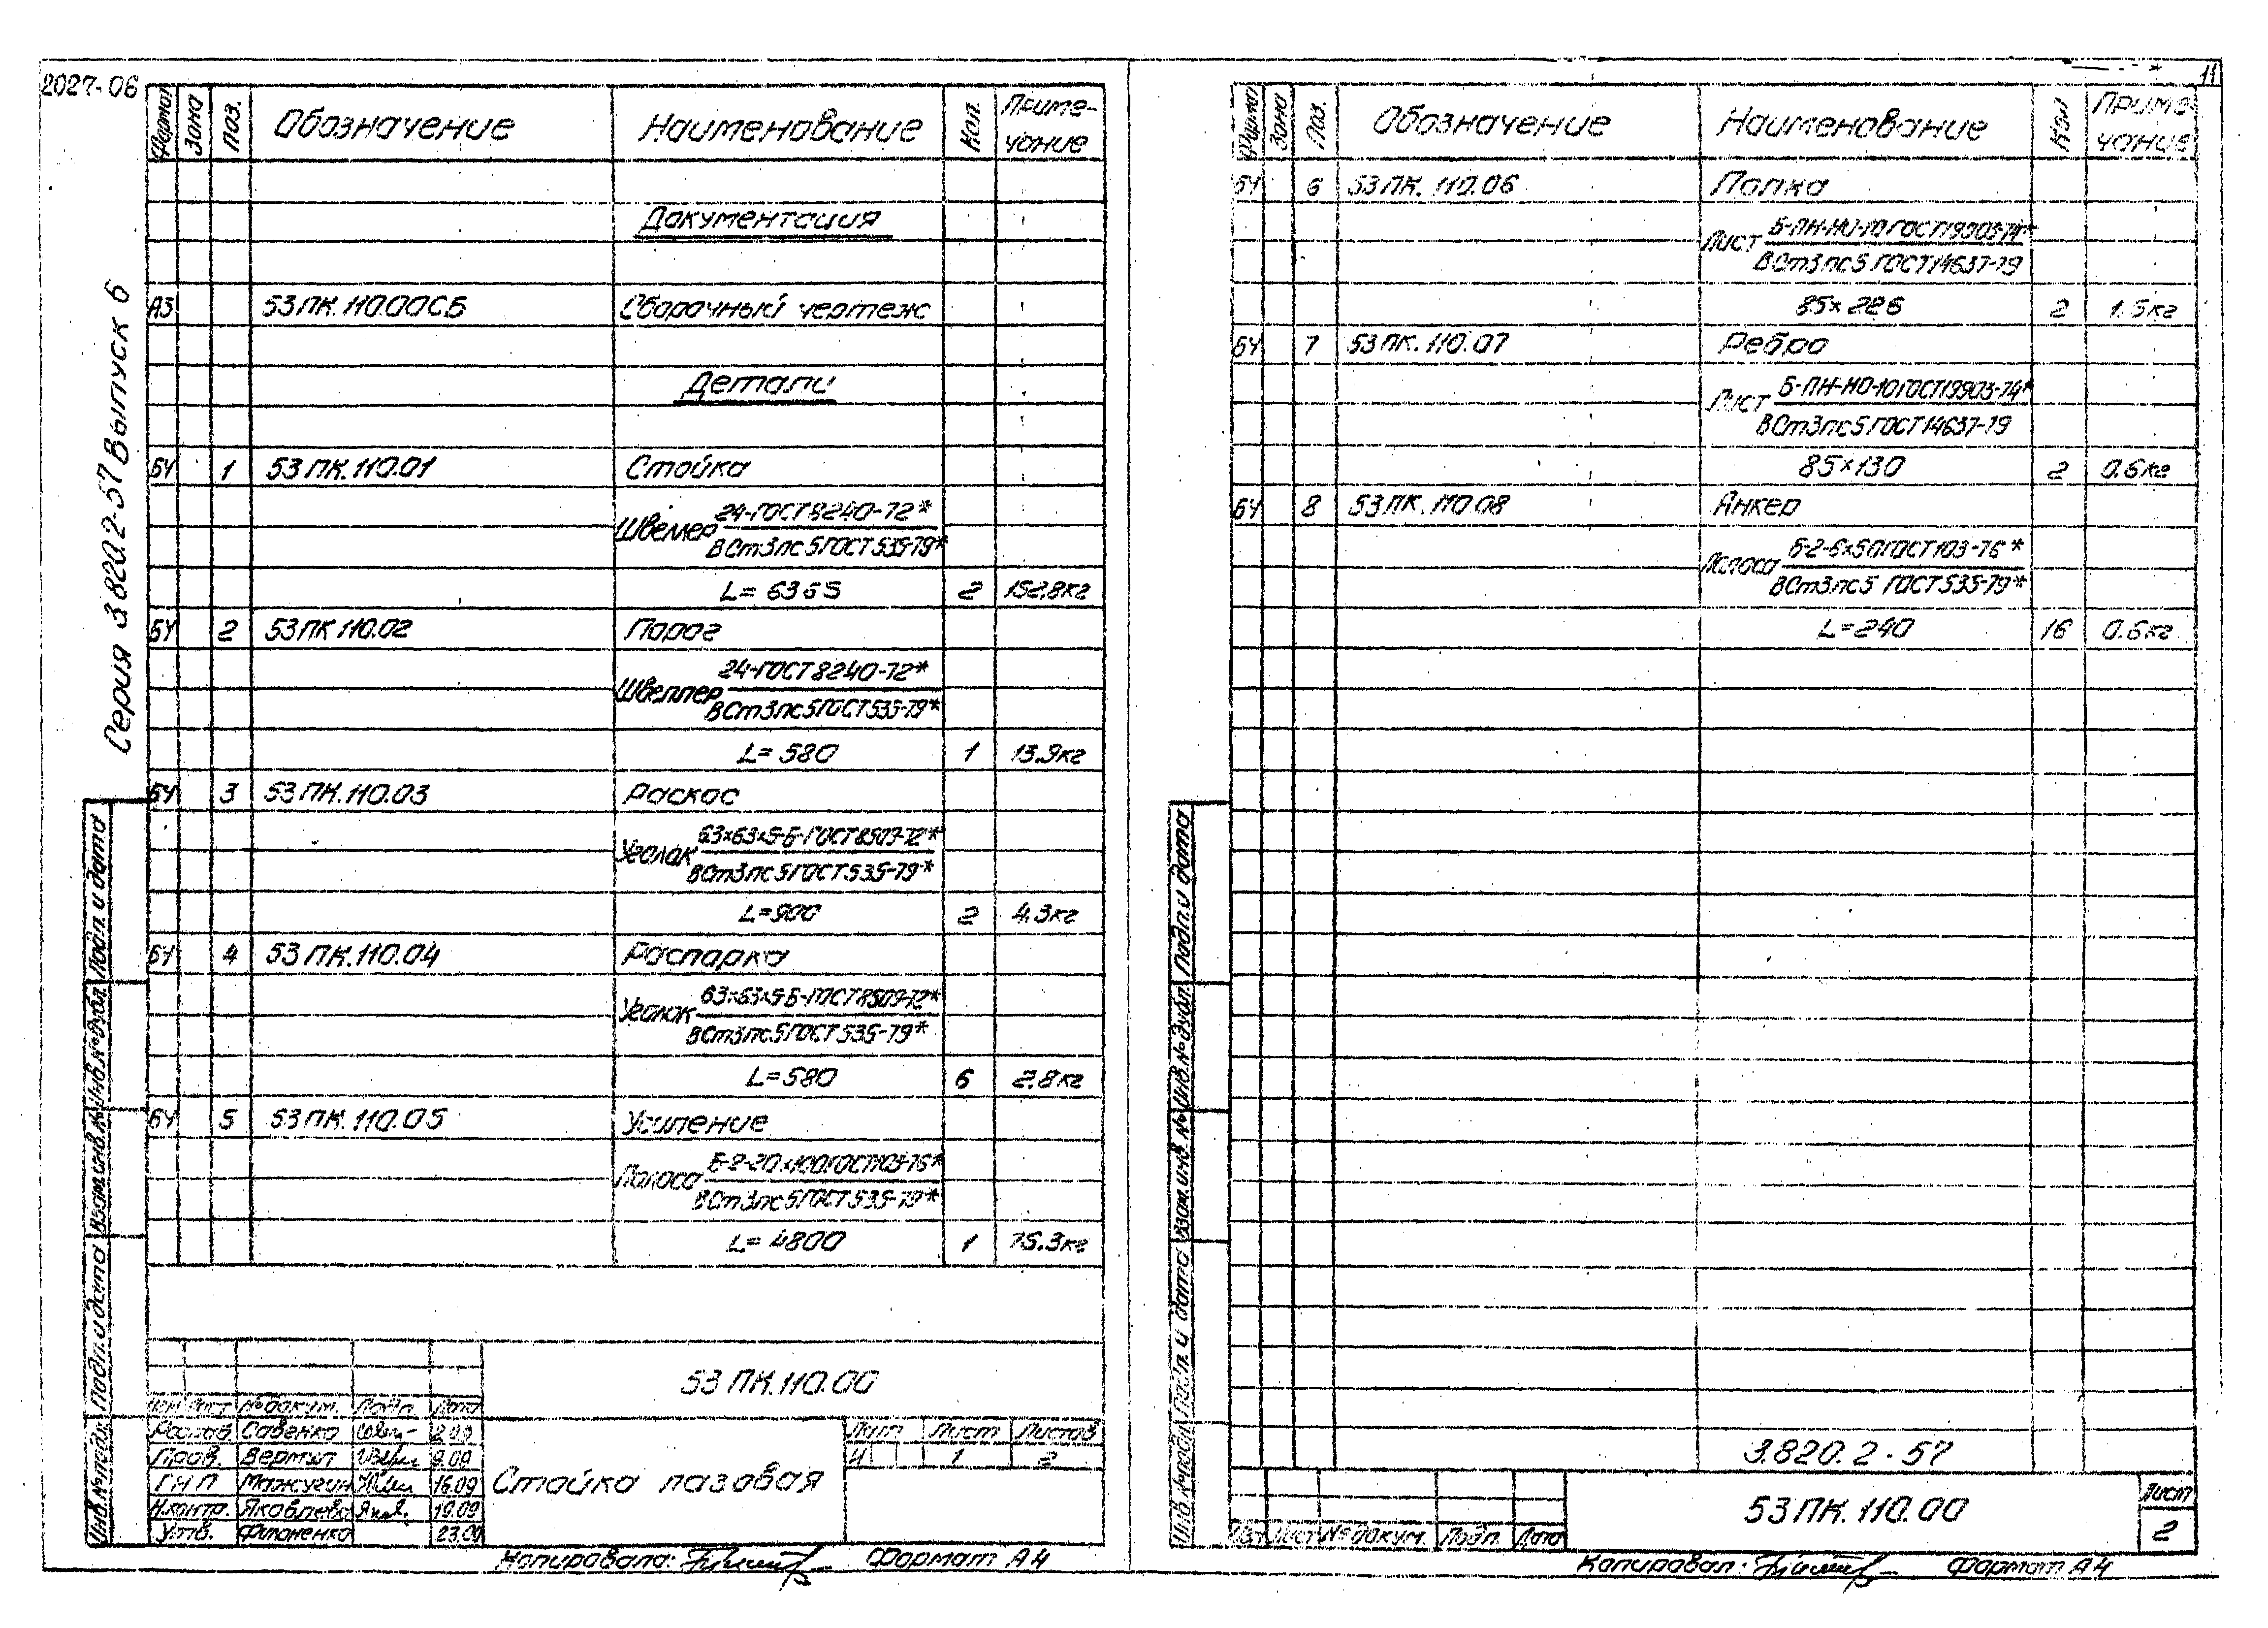 2027-06
Серия 3.820.2-57 Выпуск 6
Формат Зона Поз. Обозначение Наименование Кол. Приме-
чание
Документация
А3 53ПК.110.00СБ Сборочный чертеж
Детали
БЧ 1 53ПК.110.01 Стойка
Швеллер 24-ГОСТ8240-72*
ВСт3пс5ГОСТ535-79*
L=6365 2 152.8кг
БЧ 2 53ПК.110.02 Порог
Швеллер 24-ГОСТ8240-72*
ВСт3пс5ГОСТ535-79*
L=580 1 13.9кг
БЧ 3 53ПК.110.03 Раскос
Уголок 63×63×5-Б-ГОСТ8509-72*
ВСт3пс5ГОСТ535-79*
L=900 2 4.3кг
БЧ 4 53ПК.110.04 Распорка
Уголок 63×63×5-Б-ГОСТ8509-72*
ВСт3пс5ГОСТ535-79*
L=580 6 2.8кг
БЧ 5 53ПК.110.05 Усиление
Полоса Б-2-20×100ГОСТ103-76*
ВСт3пс5ГОСТ535-79*
L=4800 1 75.3кг
Инв.№подл. Подп. и дата Взам.инв.№ Инв.№дубл. Подп. и дата
53ПК.110.00
Изм Лист №докум. Подп. Дата
Разраб. Савенко 2.09
Пров. Вермул 9.09
ГИП Мажугин 16.09
Н.контр. Яковлева 19.09
Утв. Филоненко 23.09
Стойка пазовая
Лит Лист Листов
И 1 2
Копировала: Формат А4
11
Формат Зона Поз. Обозначение Наименование Кол Приме
чание
БЧ 6 53ПК.110.06 Полка
Лист Б-ПН-НО-10ГОСТ19903-74*
ВСт3пс5ГОСТ14637-79
85×226 2 1.5кг
БЧ 7 53ПК.110.07 Ребро
Лист Б-ПН-НО-10ГОСТ19903-74*
ВСт3пс5ГОСТ14637-79
85×130 2 0.6кг
БЧ 8 53ПК.110.08 Анкер
Полоса Б-2-6×50ГОСТ103-76*
ВСт3пс5 ГОСТ535-79*
L=240 16 0.6кг
Инв.№подл Подп. и дата Взам.инв.№ Инв.№дубл. Подп.и дата
3.820.2-57
53ПК.110.00
Лист
2
Изм Лист №докум. Подп. Дата
Копировал: Формат А4